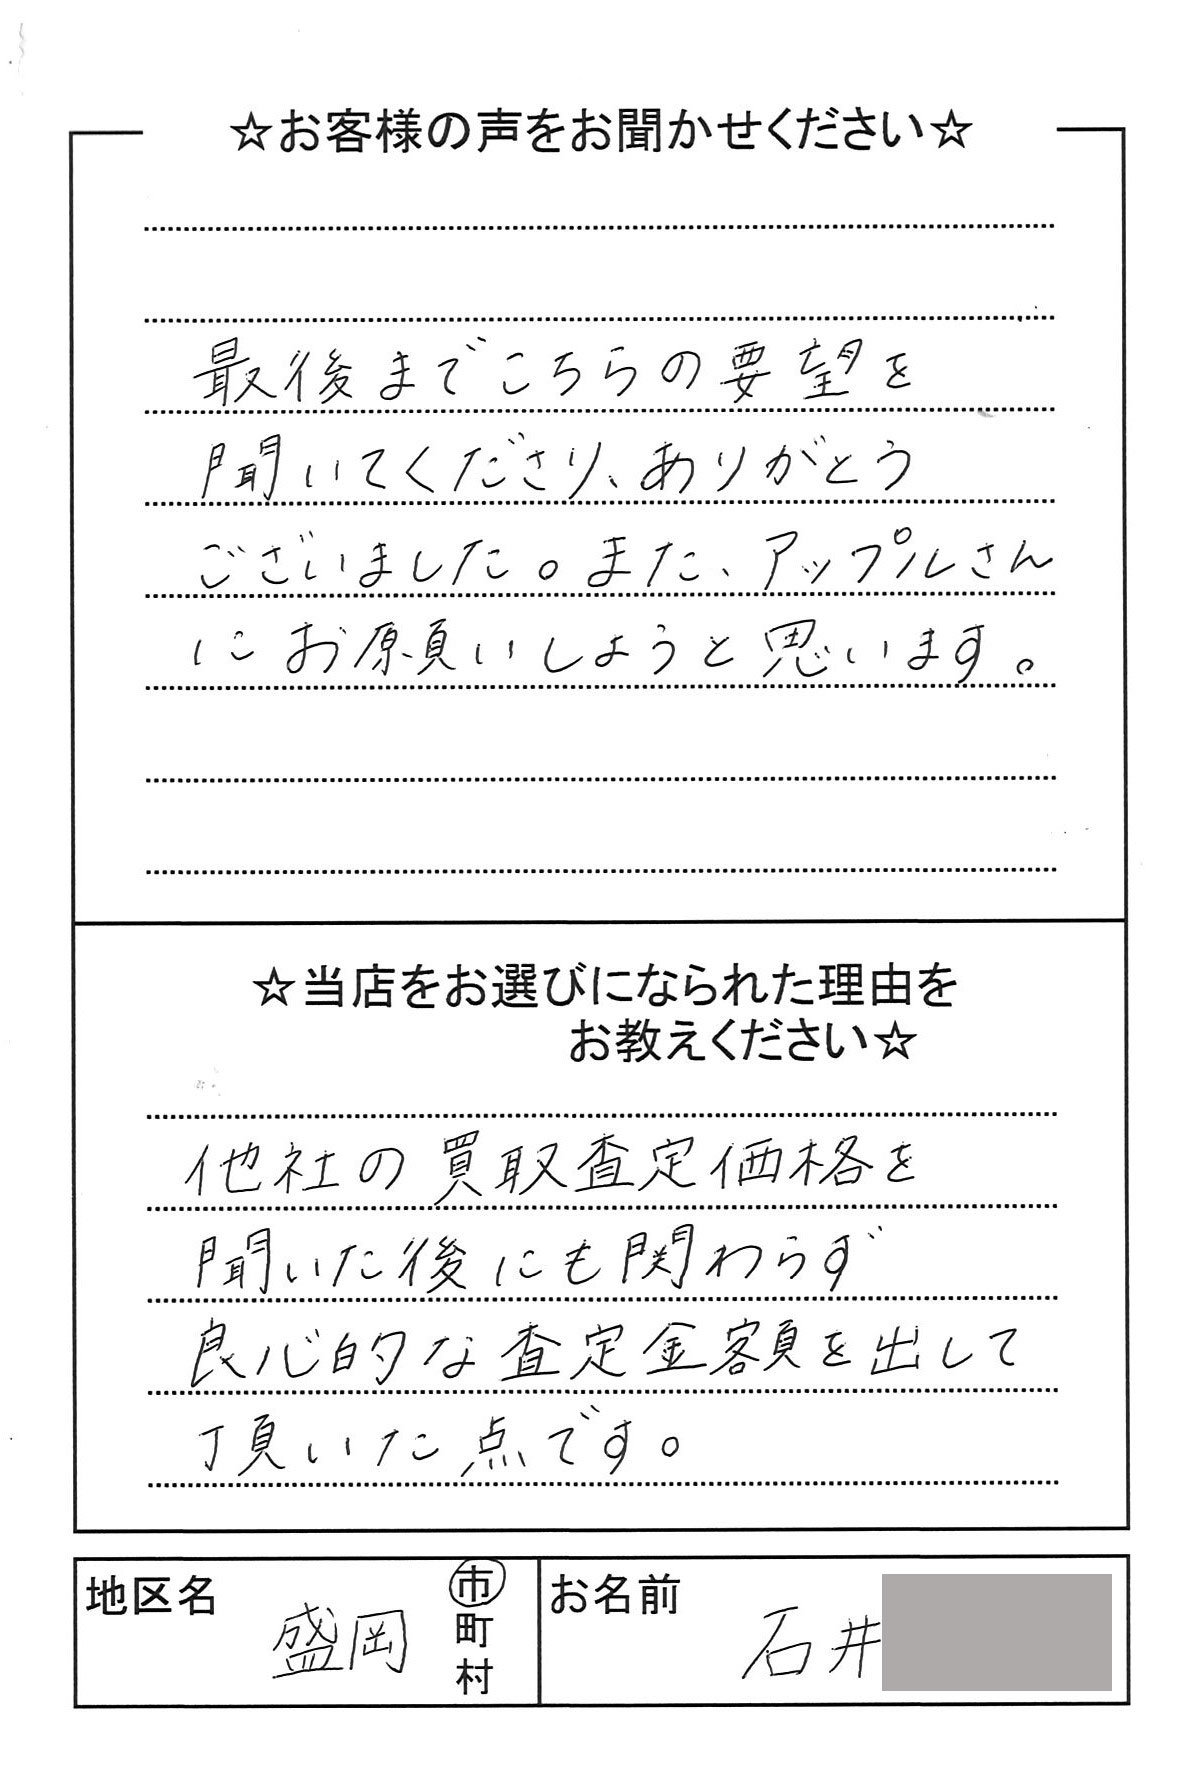 ☆お客様の声をお聞かせください☆
最後までこちらの要望を
聞いてくださり、ありがとう
ございました。また、アップルさん
にお願いしようと思います。
☆当店をお選びになられた理由を
お教えください☆
他社の買取査定価格を
聞いた後にも関わらず
良心的な査定金額を出して
頂いた点です。
地区名
盛岡
市
町
村
お名前
石井